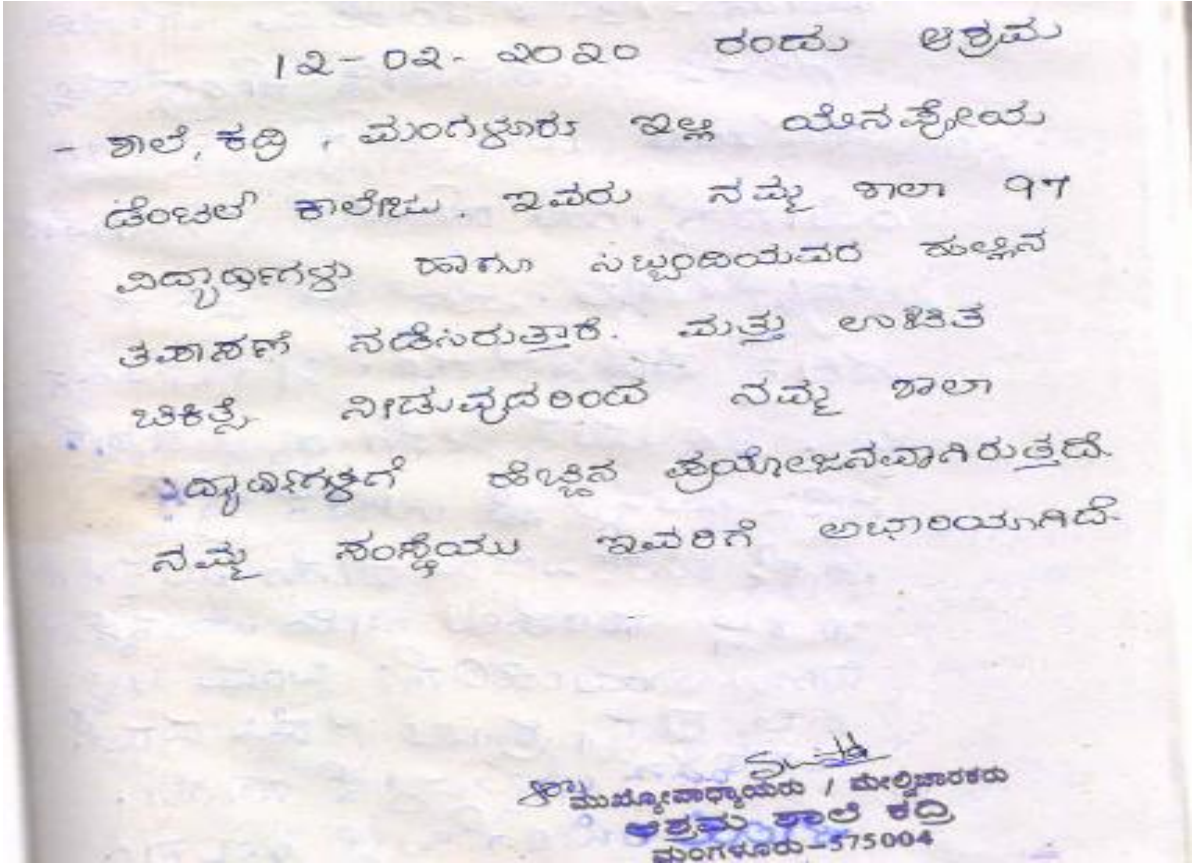 12-02-2020 ರಂದು ಆಶ್ರಮ
- ಶಾಲೆ, ಕದ್ರಿ, ಮಂಗಳೂರು ಇಲ್ಲಿ ಯೆನಪೋಯ
ಡೆಂಟಲ್ ಕಾಲೇಜು. ಇವರು ನಮ್ಮ ಶಾಲಾ 97
ವಿದ್ಯಾರ್ಥಿಗಳು ಹಾಗೂ ಸಿಬ್ಬಂದಿಯವರ ಹಲ್ಲಿನ
ತಪಾಸಣೆ ನಡೆಸಿರುತ್ತಾರೆ. ಮತ್ತು ಉಚಿತ
ಚಿಕಿತ್ಸೆ ನೀಡುವುದರಿಂದ ನಮ್ಮ ಶಾಲಾ
ವಿದ್ಯಾರ್ಥಿಗಳಿಗೆ ಹೆಚ್ಚಿನ ಪ್ರಯೋಜನವಾಗಿರುತ್ತದೆ.
ನಮ್ಮ ಸಂಸ್ಥೆಯು ಇವರಿಗೆ ಅಭಾರಿಯಾಗಿದೆ.
ಮುಖ್ಯೋಪಾಧ್ಯಾಯರು / ಮೇಲ್ವಿಚಾರಕರು
ಆಶ್ರಮ ಶಾಲೆ ಕದ್ರಿ
ಮಂಗಳೂರು-575004